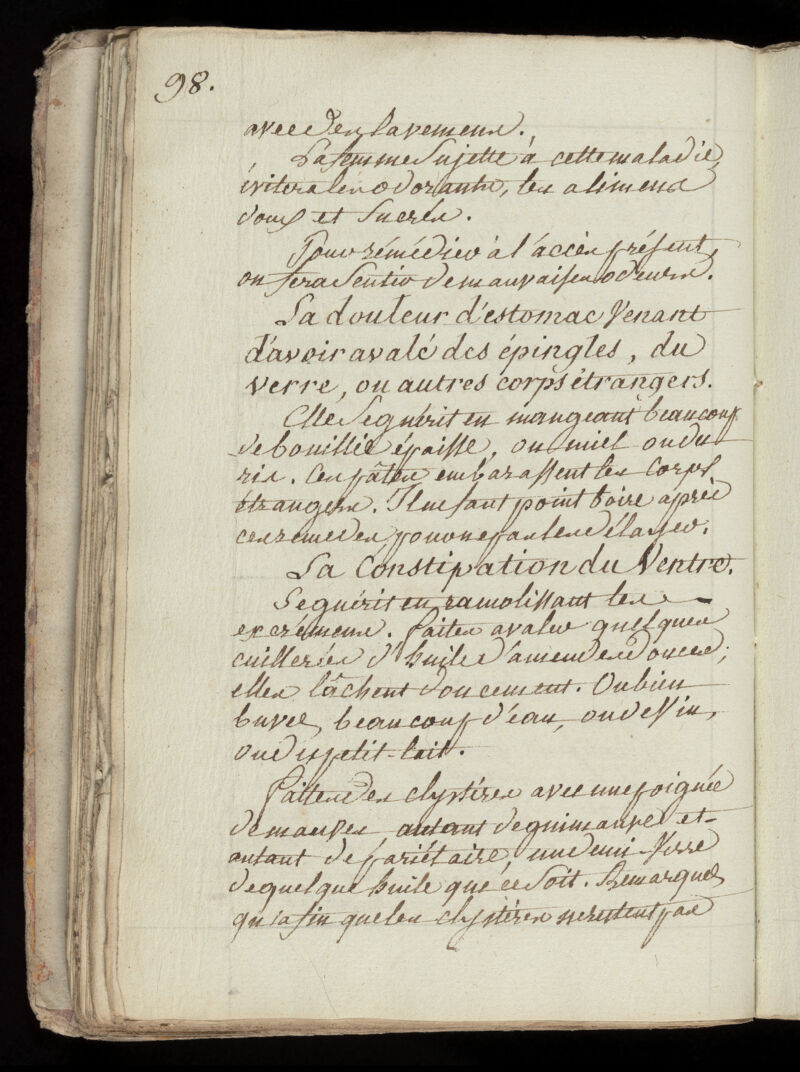 98.
avec des lavemens.
La femme Sujette à cette maladie
évitera les odorants, les alimens
doux et Sucrés.
Pour rémédier à l'accès présent,
on fera Sentir de mauvaises odeurs.
La douleur d'estomac Venant
d'avoir avalé des épingles, du
verre, ou autres corps étrangers.
Elle Se guérit en mangeant beaucoup
de bouillie épaisse, ou miel ou du
ris. Ces pâtes embarassent les corps
étrangers. Il ne faut point boire après
ces remedes pour ne pas les délayer.
La Constipation du Ventre.
Se guérit en ramolissant les
excrémens. faites avaler quelques
cuillerées d'huile d'amendes douces;
elles lâchent doucement. Ou bien
buvez beaucoup d'eau, ou de Vin,
ou du petit-lait.
faites des clystères avec une poignée
de mauves autant de guimauve et
autant de pariétaire, un demi Verre
de quelque huile que ce Soit. Remarquez
qu'afin que les clystères ne restent pas